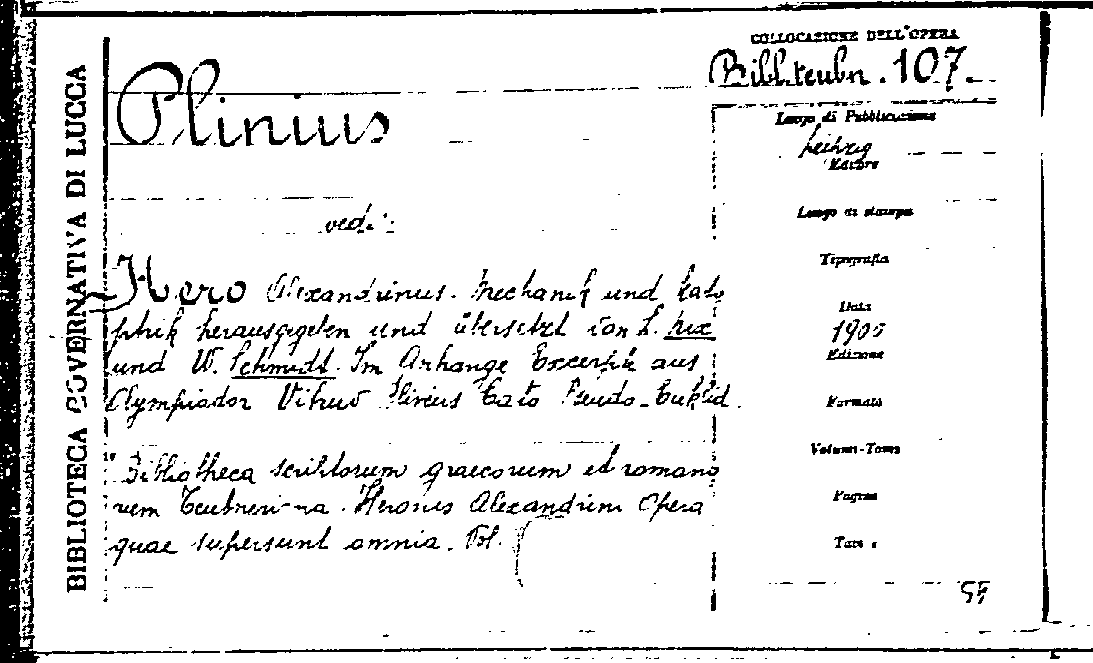 BIBLIOTECA GOVERNATIVA DI LUCCA
COLLOCAZIONE DELL'OPERA
Bibl. teubn. 107.
Plinius
Luogo di Pubblicazione
Leipzig
Editore
vedi:
Luogo di stampa
Tipografia
Hero Alexandrinus. Mechanik und kato
ptrik herausgegeben und übersetzt von L. Nix
und W. Schmidt. Im Anhange Excerpte aus
Olympiodor Vitruv Plinius Cato Pseudo-Euklid.
Data
1900
Edizione
Formato
Volumi-Tomo
Pagine
Tav.
Bibliotheca scriptorum graecorum et romano
rum Teubneriana. Heronis Alexandrini Opera
quae supersunt omnia. Vol.